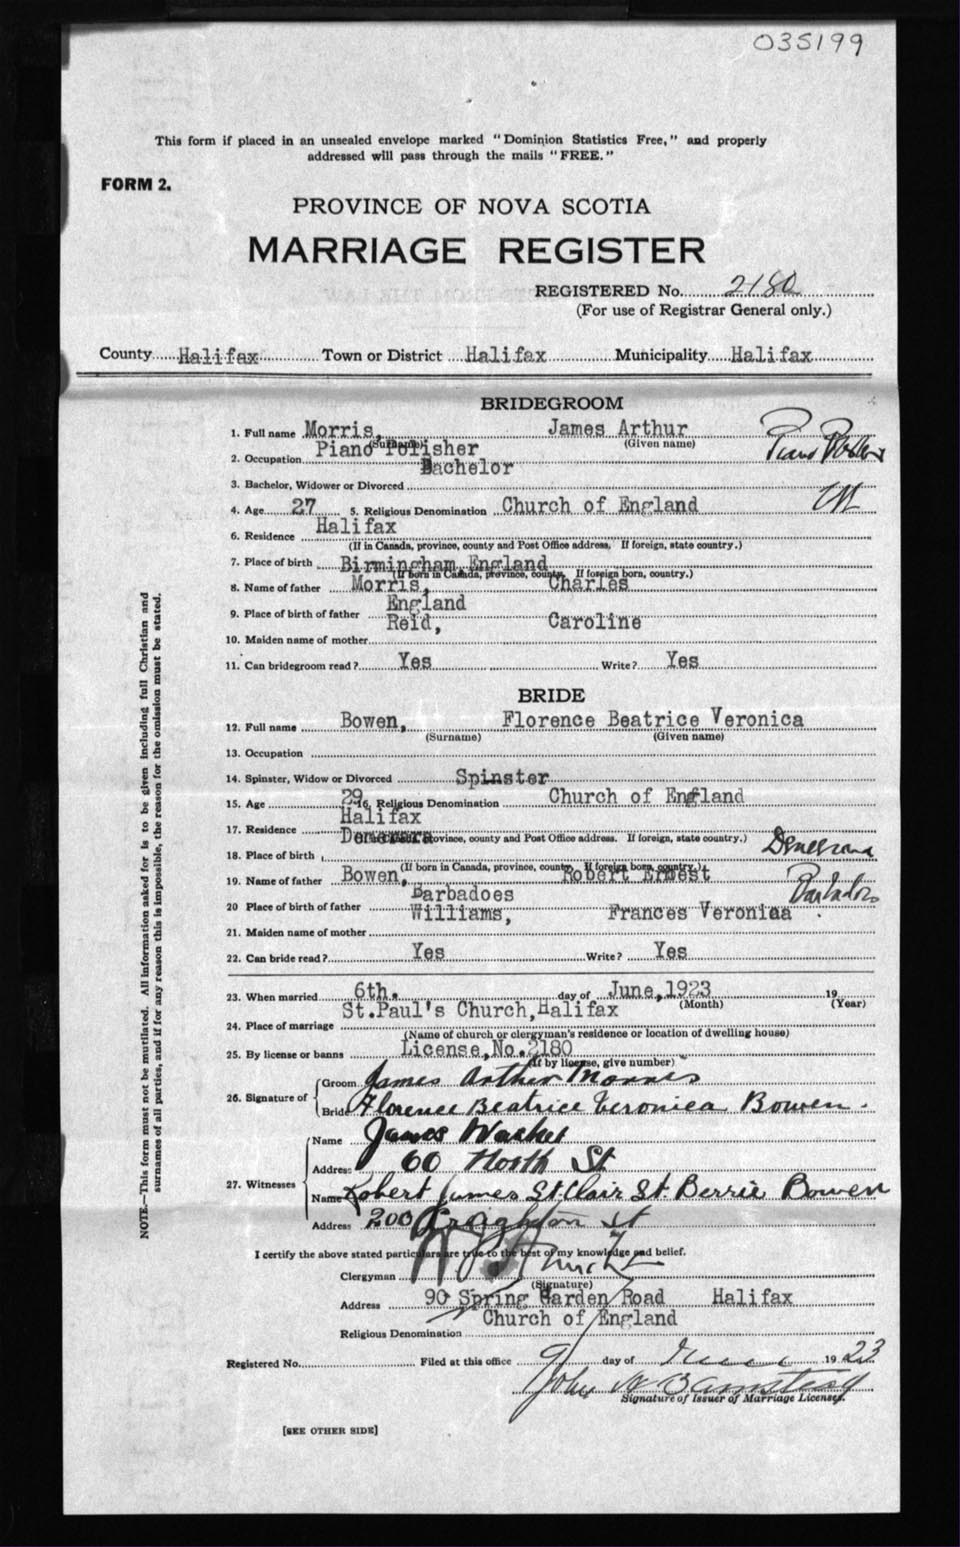 035199
This form if placed in an unsealed envelope marked "Dominion Statistics Free," and properly
addressed will pass through the mails "FREE."
FORM 2.
PROVINCE OF NOVA SCOTIA
MARRIAGE REGISTER
REGISTERED No. 2180
(For use of Registrar General only.)
County Halifax Town or District Halifax Municipality Halifax
BRIDEGROOM
1. Full name Morris, James Arthur
(Surname) (Given name)
Piano Polisher
2. Occupation
Bachelor
3. Bachelor, Widower or Divorced
4. Age 27 5. Religious Denomination Church of England
Halifax
6. Residence
(If in Canada, province, county and Post Office address. If foreign, state country.)
7. Place of birth Birmingham, England
(If born in Canada, province, county. If foreign born, country.)
8. Name of father Morris, Charles
England
9. Place of birth of father
Reid, Caroline
10. Maiden name of mother
11. Can bridegroom read? Yes Write? Yes
BRIDE
12. Full name Bowen, Florence Beatrice Veronica
(Surname) (Given name)
13. Occupation
14. Spinster, Widow or Divorced Spinster
15. Age 29 16. Religious Denomination Church of England
Halifax
17. Residence
Demerara
(If in Canada, province, county and Post Office address. If foreign, state country.)
18. Place of birth
(If born in Canada, province, county. If foreign born, country.)
19. Name of father Bowen, Robert Ernest
Barbadoes
20 Place of birth of father
Williams, Frances Veronica
21. Maiden name of mother
22. Can bride read? Yes Write? Yes
23. When married 6th. day of June, 1923 19
(Month) (Year)
St. Paul's Church, Halifax
24. Place of marriage
(Name of church or clergyman's residence or location of dwelling house)
25. By license or banns License, No. 2180
(If by license, give number)
26. Signature of
Groom James Arthur Morris
Bride Florence Beatrice Veronica Bowen.
27. Witnesses
Name James
Address 60 North St
Name Robert James St. Clair St. Berrie Bowen
Address 200 Creighton St
I certify the above stated particulars are true to the best of my knowledge and belief.
Clergyman
(Signature)
Address 90 Spring Garden Road Halifax
Church of England
Religious Denomination
Registered No. Filed at this office day of June 1923
John W
Signature of Issuer of Marriage Licenses.
[SEE OTHER SIDE]
NOTE.—This form must not be mutilated. All information asked for is to be given including full Christian and
surnames of all parties, and if for any reason this is impossible, the reason for the omission must be stated.